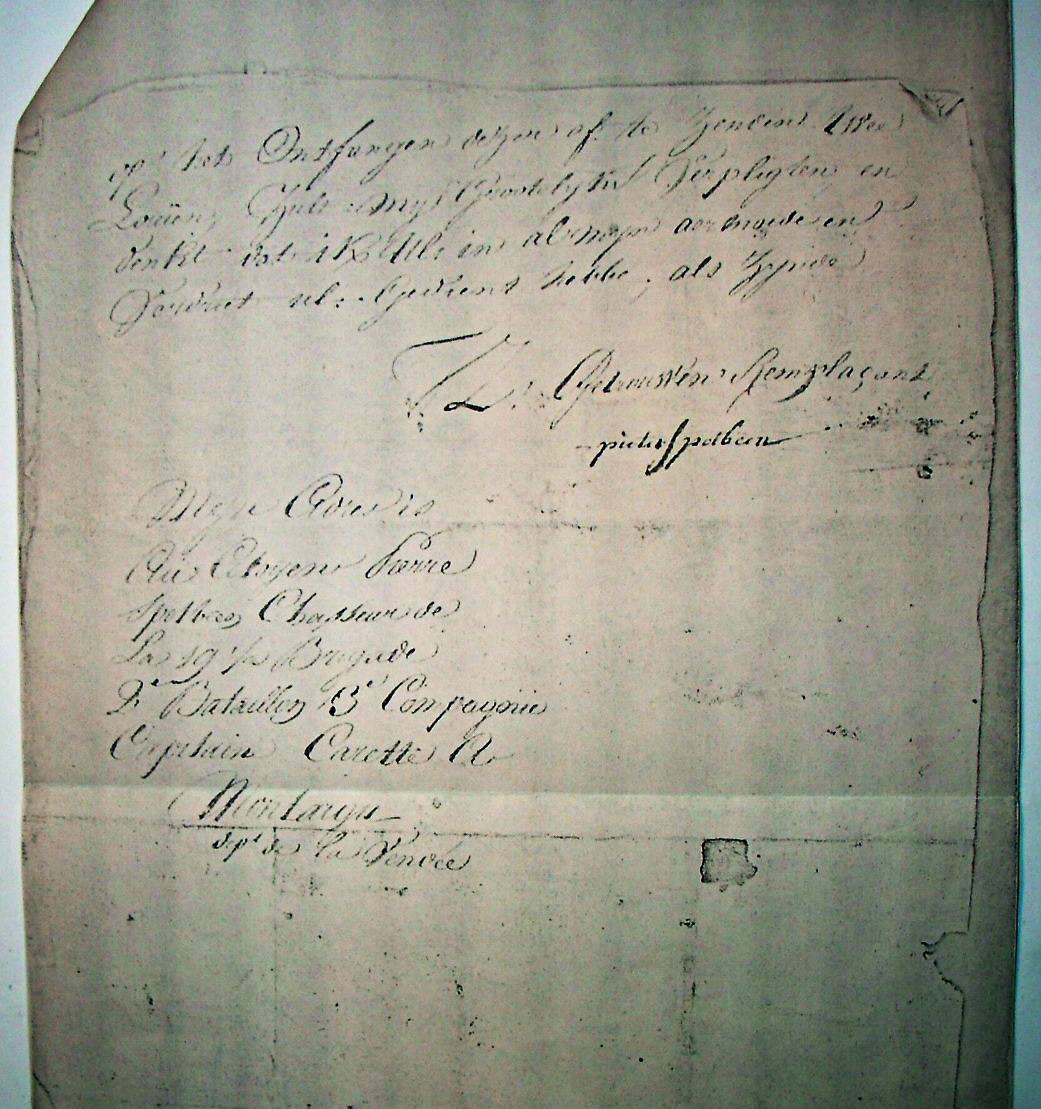 op het Ontfangen dezen af te Zenden twee
Louïen, Zult mij Grootelyks Verpligten, en
denkt dat ik Ul: in al mijn aermoede en
Verdriet ul: Gedient hebbe, als Zynde
Getrouwen Remplaçant
pieter Spelbeen
Myn Adres is
Au Citoyen Pierre
Spelbeen Chasseur de
La 19 1/2 Brigade
2e Bataillon 3e Compagnie
Capitain Carotte A
Montaigu
dept de la Vendée